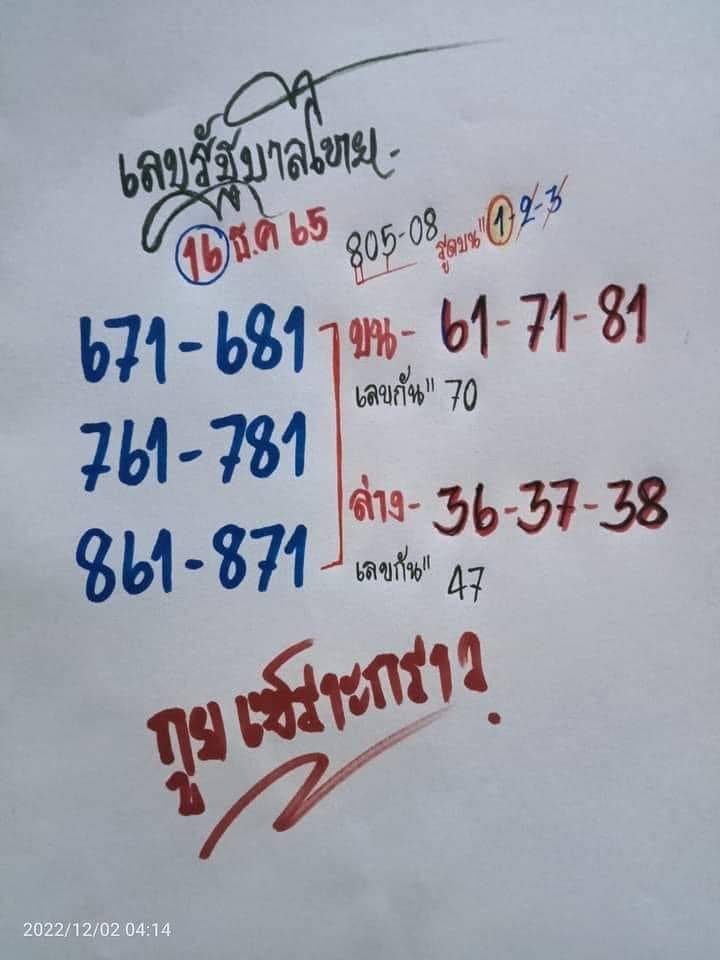 เลขรัฐบาลไทย-
16 ธ.ค 65 805-08 สูตรบน" 1-2-3
671-681
761-781
861-871
บน- 61-71-81
เลขกัน" 70
ล่าง- 36-37-38
เลขกัน" 47
กูย
2022/12/02 04:14